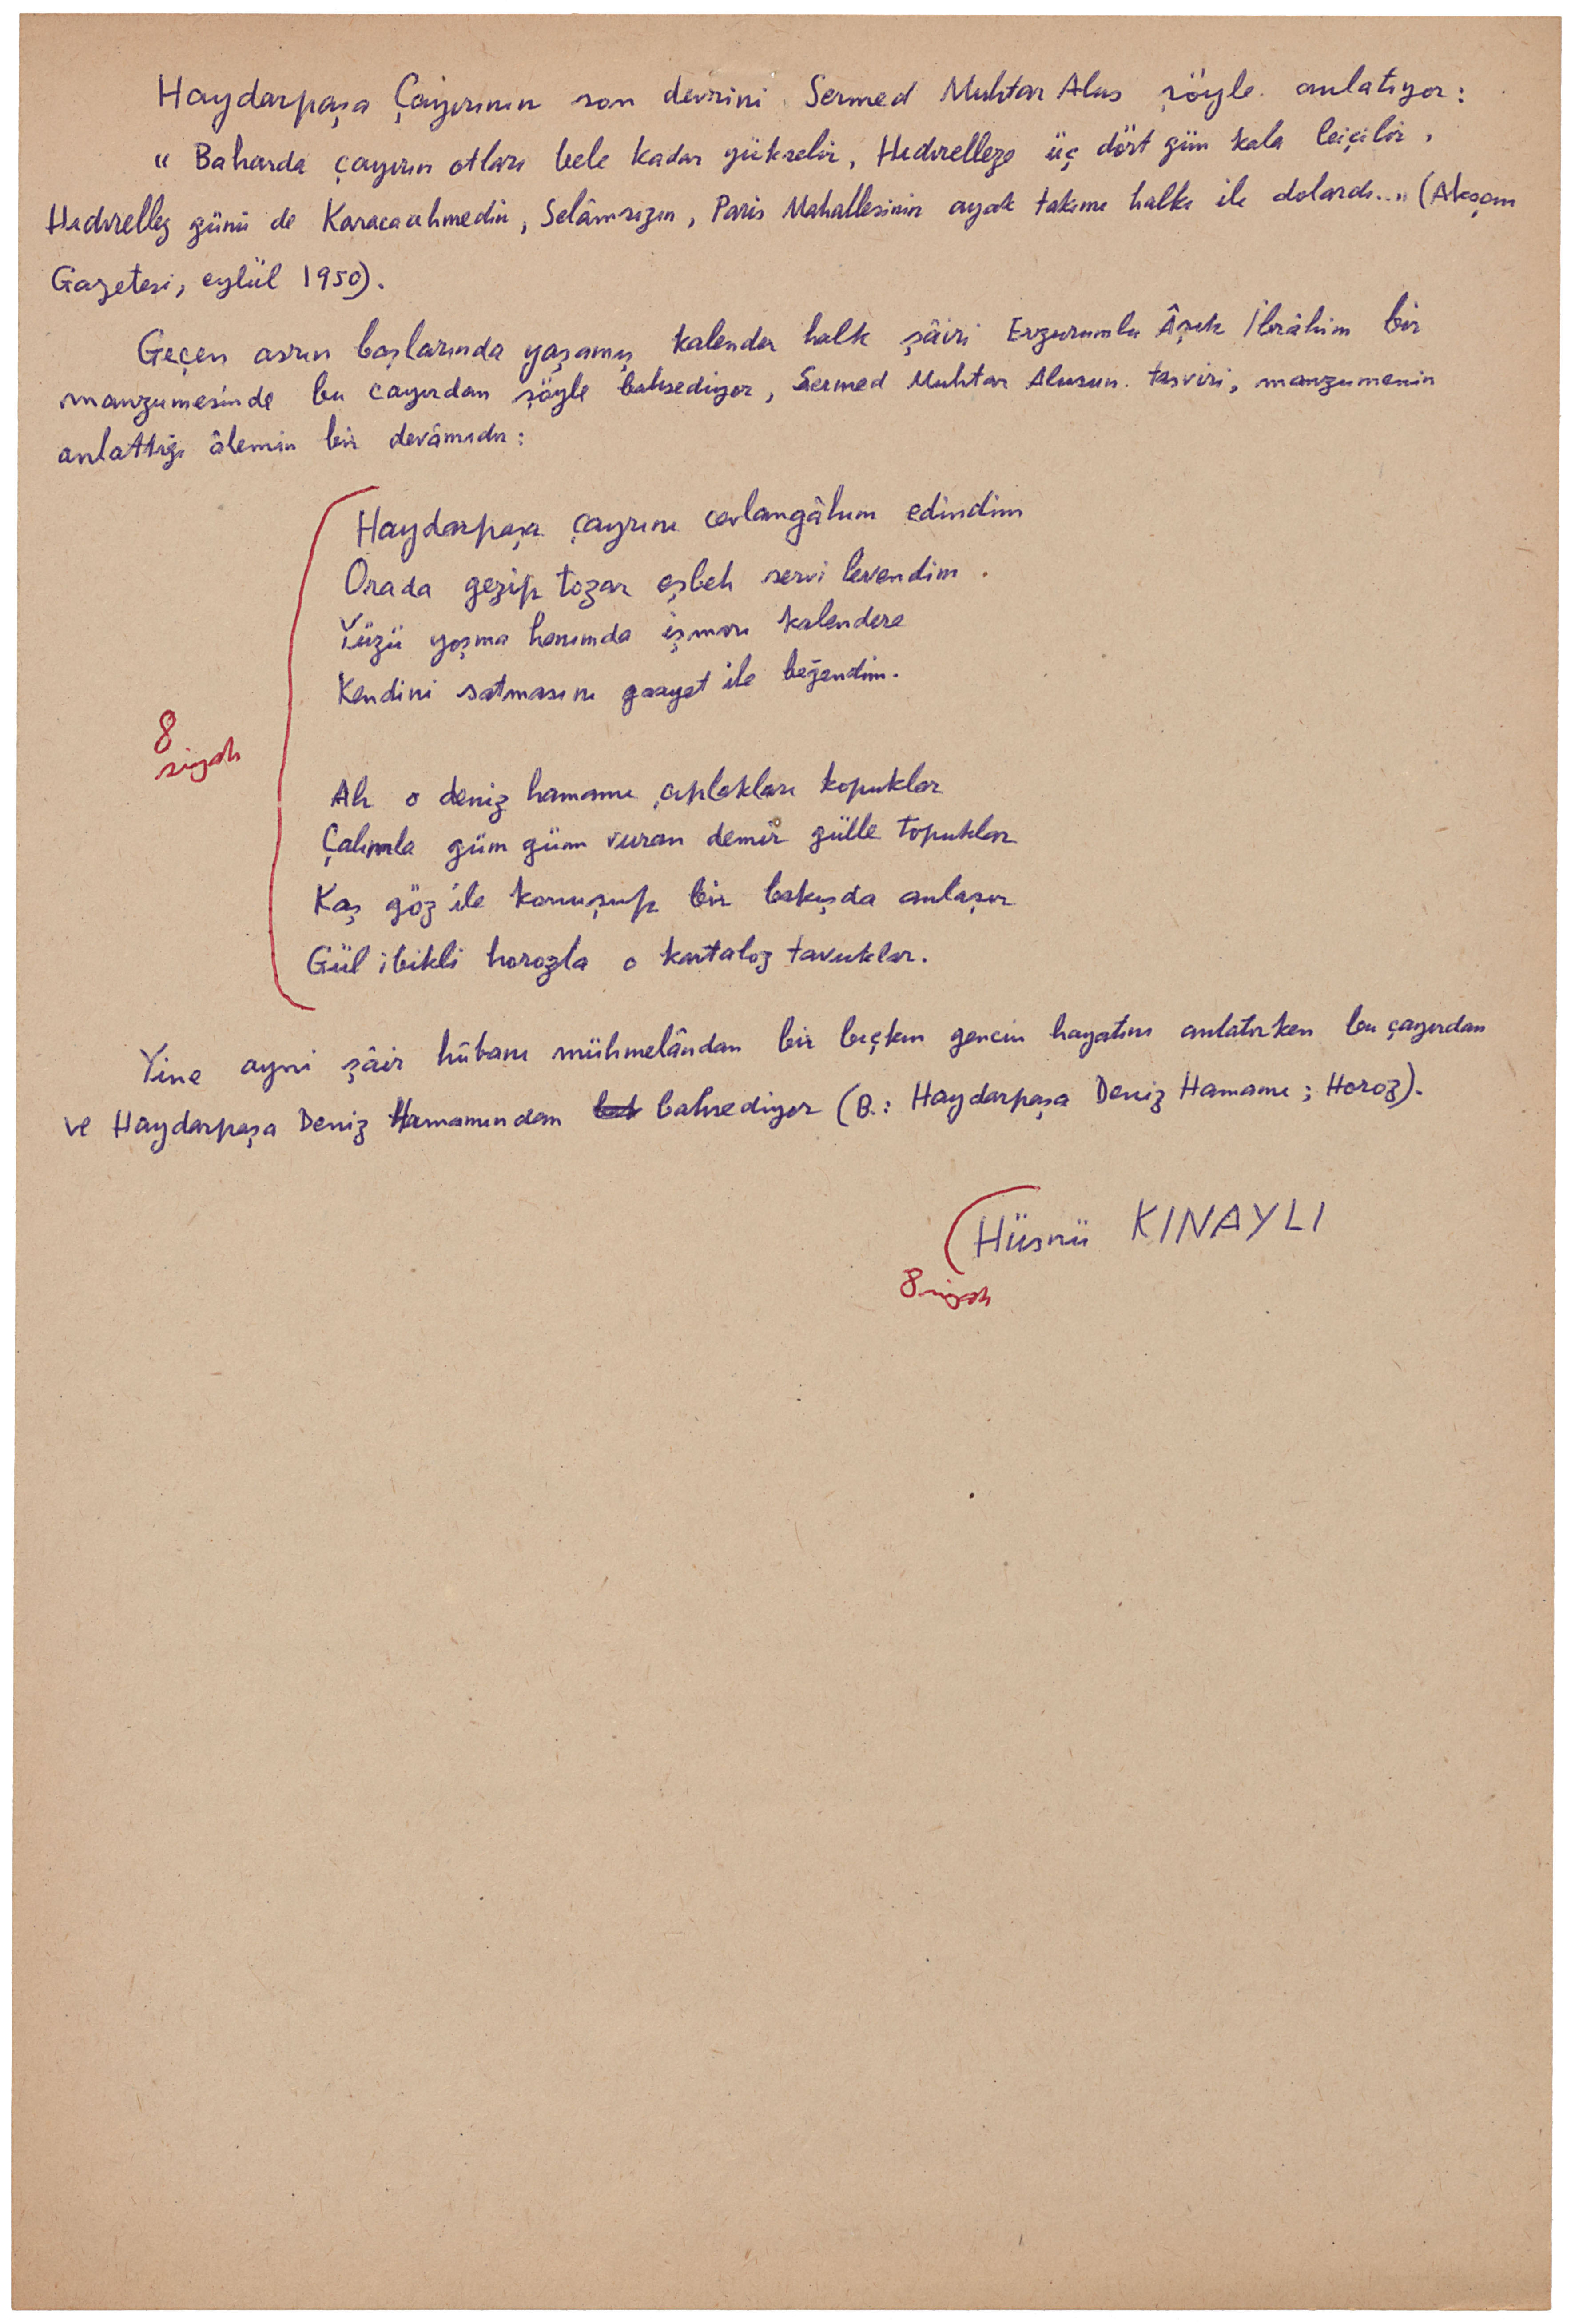 Haydarpaşa Çayırının son devrini Sermed Muhtar Alus şöyle anlatıyor:
"Baharda çayırın otları bele kadar yükselir, Hıdırelleze üç dört gün kala biçilir,
Hıdırellez günü de Karacaahmedin, Selâmsızın, Paris Mahallesinin ayak takımı halkı ile dolardı..." (Akşam
Gazetesi, eylül 1950).
Geçen asrın başlarında yaşamış kalender halk şâiri Erzurumlu Âşık İbrâhim bir
manzumesinde bu çayırdan şöyle bahsediyor, Sermed Muhtar Alusun tasviri, manzumenin
anlattığı âlemin bir devâmıdır:
Haydarpaşa çayırını cevlangâhım edindim
Orada gezip tozar eşbeh servi levendim.
Yüzü yoşma hanımda işmarı kalendere
Kendini satmasını gaayet ile beğendim.
8
siyah
Ah o deniz hamamı çıplakları kopuklar
Çalımla güm güm vuran demir gülle topuklar
Kaş göz ile konuşup bir bakışda anlaşır
Gül ibikli horozla o kartaloz tavuklar.
Yine ayni şâir hûbanı mühmelândan bir bıçkın gencin hayatını anlatırken bu çayırdan
ve Haydarpaşa Deniz Hamamından bahsediyor (B.: Haydarpaşa Deniz Hamamı; Horoz).
Hüsnü KINAYLI
8 siyah